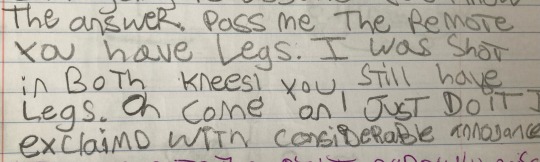 The answer. Pass me The Remote
You have Legs. I was Shot
in Both Kneesi you Still have
Legs. Oh come on! Just Do it I
exclaimd with considerable annoyance